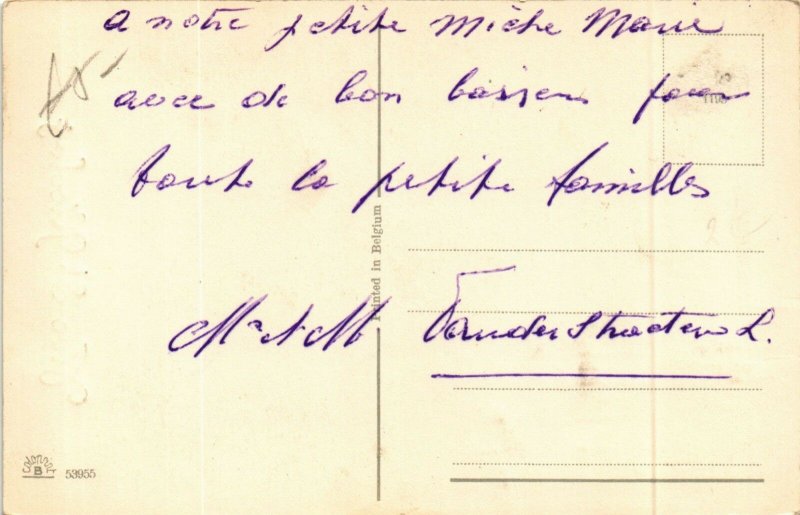 a notre petite Mièke Marie
avec de bon baisers pour
toute la petite familles
Mr et M Vander Straetens L.
Printed in Belgium
COLORPRINT
B
53955